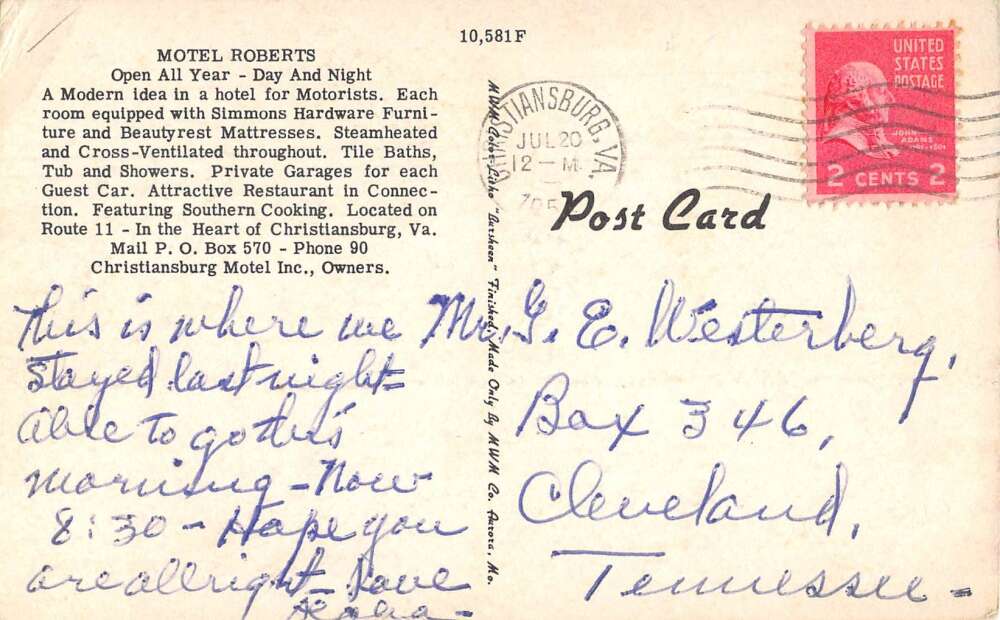 10,581F
MOTEL ROBERTS
Open All Year - Day And Night
A Modern idea in a hotel for Motorists. Each
room equipped with Simmons Hardware Furni-
ture and Beautyrest Mattresses. Steamheated
and Cross-Ventilated throughout. Tile Baths,
Tub and Showers. Private Garages for each
Guest Car. Attractive Restaurant in Connec-
tion. Featuring Southern Cooking. Located on
Route 11 - In the Heart of Christiansburg, Va.
Mail P. O. Box 570 - Phone 90
Christiansburg Motel Inc., Owners.
This is where we
stayed last night -
Able to go this
morning - Now
8:30 - Hope you
are allright - Love
MWM Color-Litho "Barsheen" Finished, Made Only By MWM Co. Aurora, Mo.
CHRISTIANSBURG, VA.
JUL 20
12 - M
UNITED
STATES
POSTAGE
JOHN
ADAMS
2 CENTS 2
Post Card
Mr. G. E. Westerberg,
Box 346,
Cleveland,
Tennessee -